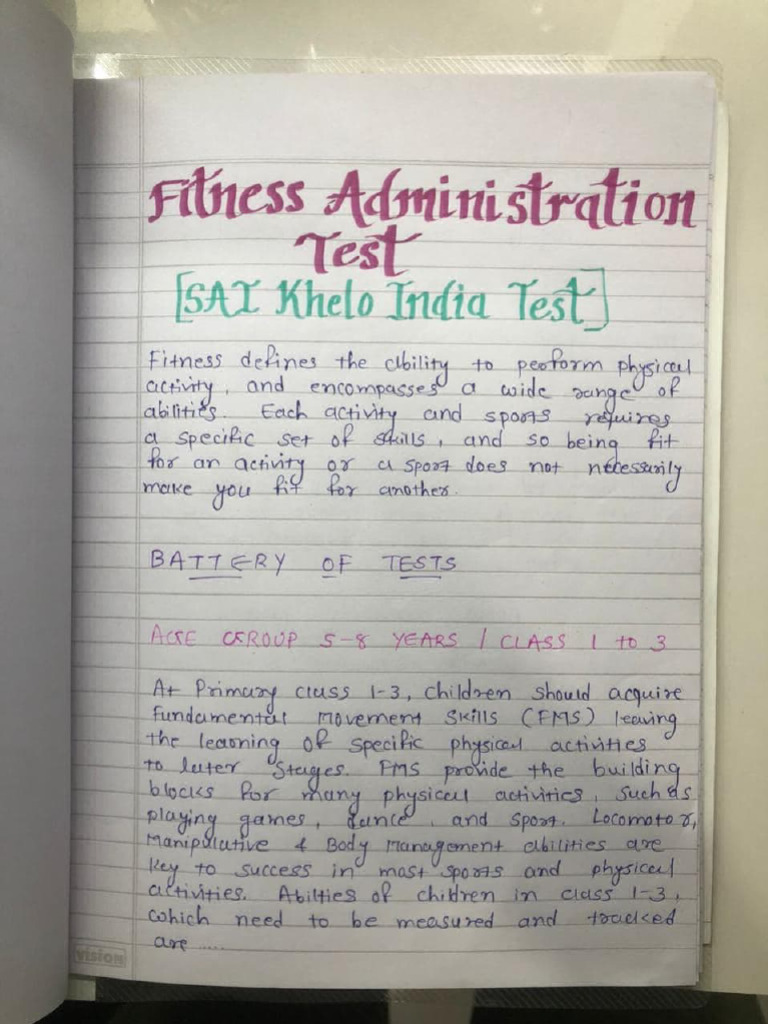 Fitness Administration
Test
[SAI Khelo India Test]
Fitness defines the ability to perform physical
activity, and encompasses a wide range of
abilities. Each activity and sports requires
a specific set of skills, and so being fit
for an activity or a sport does not necessarily
make you fit for another.
BATTERY OF TESTS
AGE GROUP 5-8 YEARS / CLASS 1 to 3
At Primary class 1-3, children should acquire
Fundamental Movement Skills (FMS) leaving
the learning of specific physical activities
to later stages. FMS provide the building
blocks for many physical activities, such as
playing games, dance, and sport. Locomotor,
Manipulative & Body Management abilities are
key to success in most sports and physical
activities. Abilties of children in class 1-3,
which need to be measured and tracked
are .....
vision